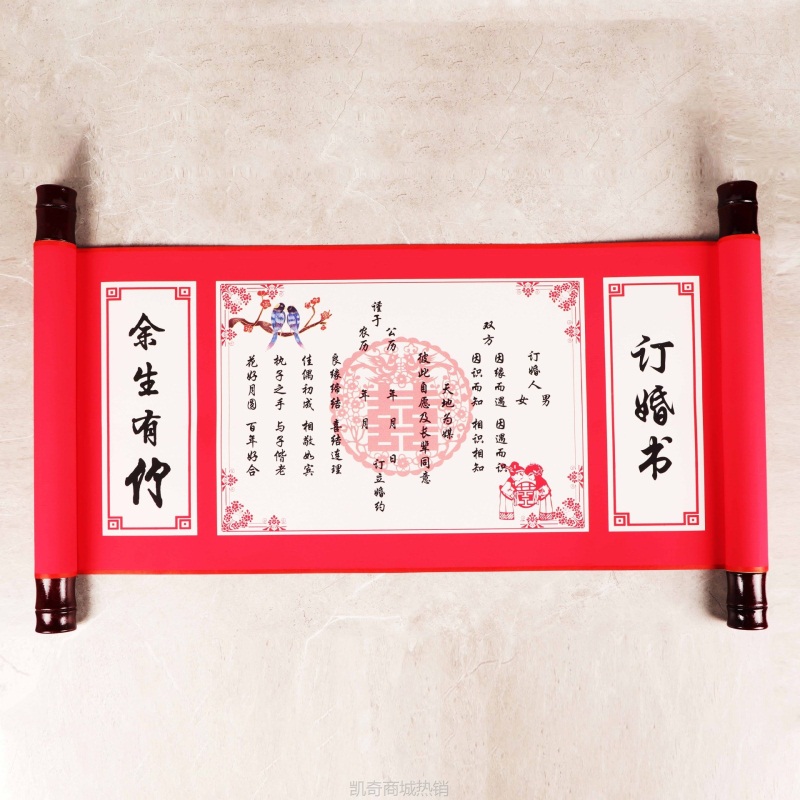 订婚书
订婚人 男
女
双方 因缘而遇 因遇而识
因识而知 相识相知
天地为媒
彼此自愿及长辈同意
谨于 公历 年 月 日
农历 年 月 订立婚约
良缘缔结 喜结连理
佳偶初成 相敬如宾
执子之手 与子偕老
花好月圆 百年好合
余生有你
凯奇商城热销